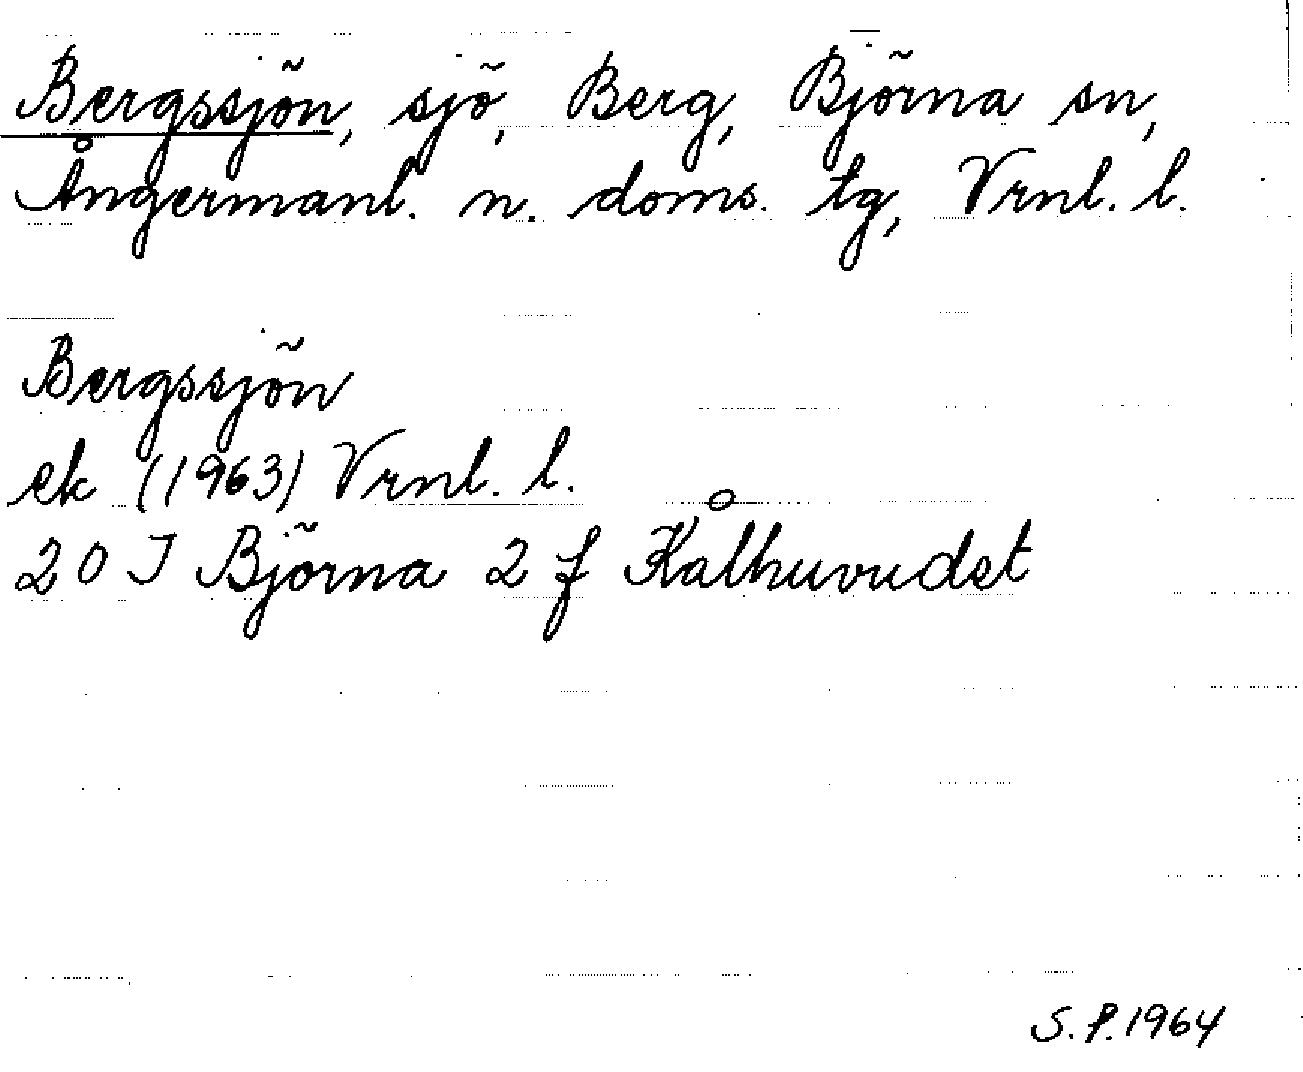 Bergssjön, sjö, Berg, Björna sn,
Ångermanl. n. doms. tg, Vrnl. l.
Bergssjön
ek (1963) Vrnl. l.
20 J Björna 2 f Kålhuvudet
S.P. 1964